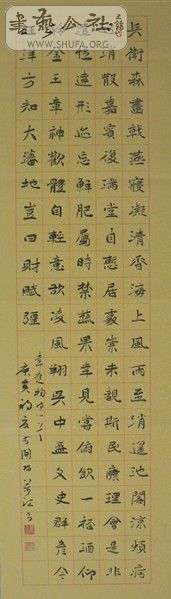 WWW.SHUFA.ORG.CN
兵衛森畫戟燕寢凝清香海上風雨至逍遙池閣涼煩痾
消散嘉賓復滿堂自慙居處崇未覩斯民康理會是非
性達形迹忘鮮肥屬時禁蔬果幸見嘗俯飲一杯酒仰
金玉章神歡體自輕意欲凌風翔吳中盛文史群彥今
洋方知大藩地豈曰財賦彊
韋應物